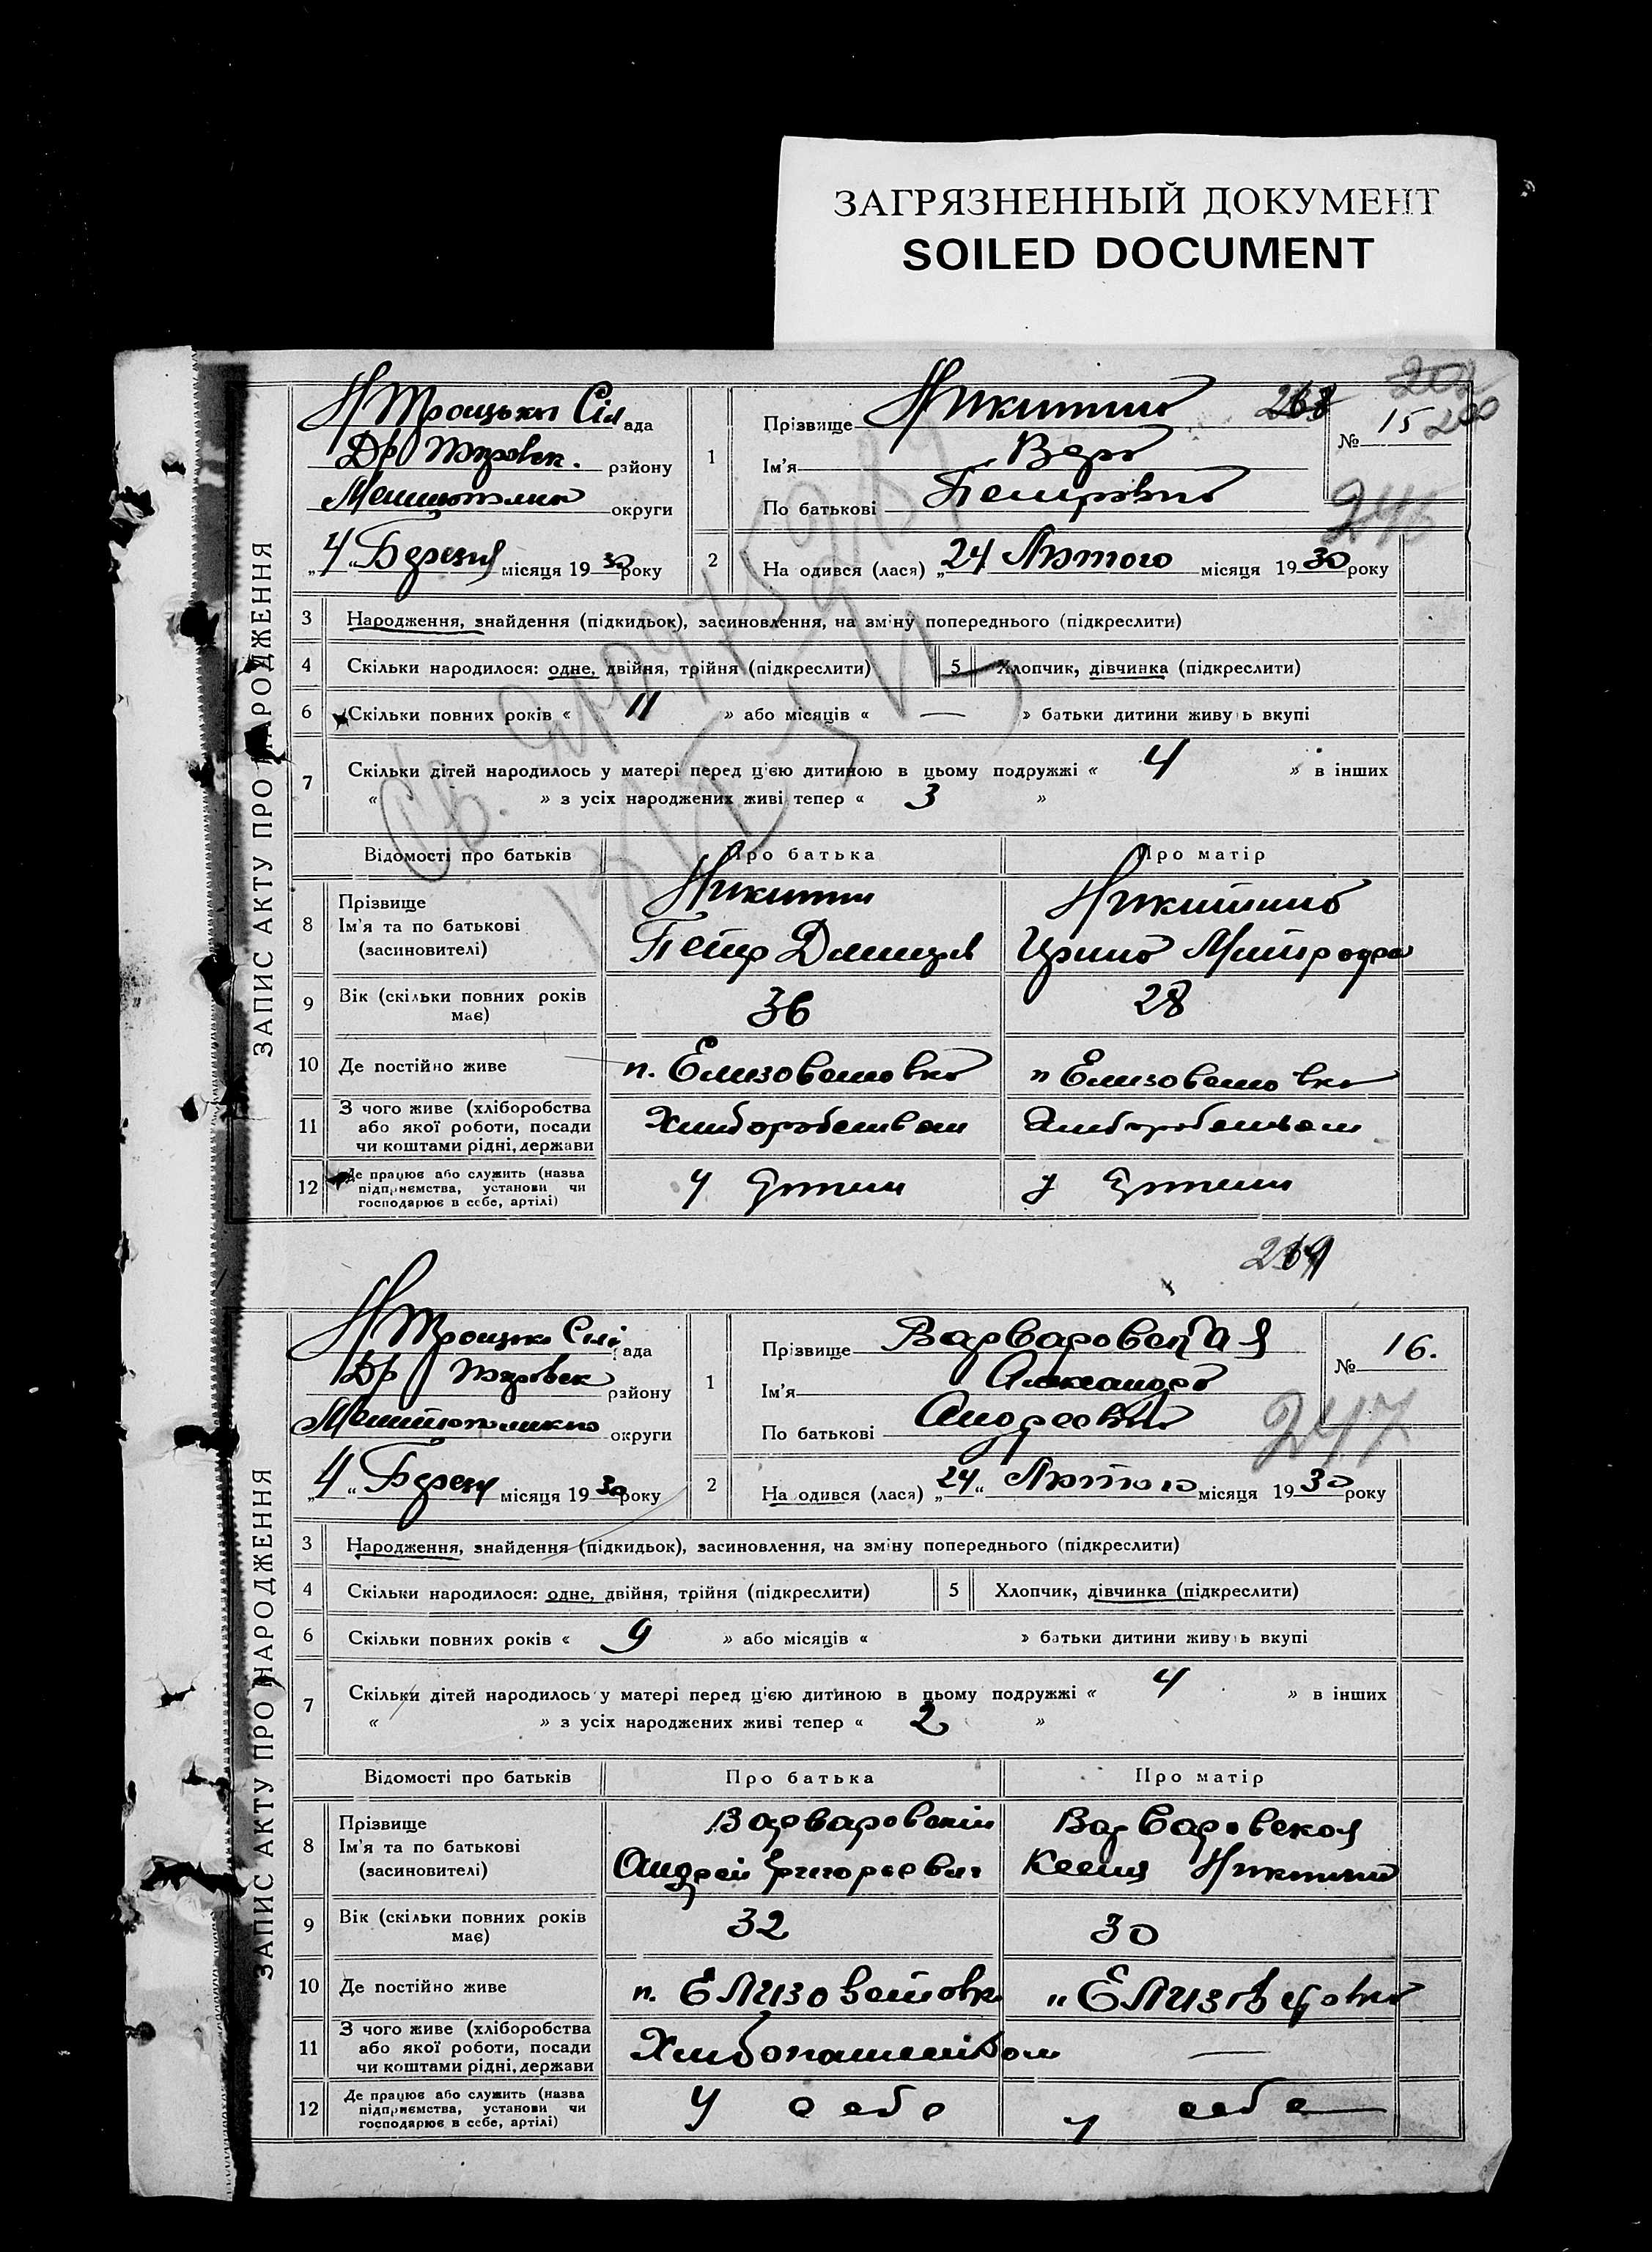 ЗАГРЯЗНЕННЫЙ ДОКУМЕНТ
SOILED DOCUMENT
ЗАПИС АКТУ ПРО НАРОДЖЕННЯ
Н Троцька Сіл ада
району
округи
„4“ Березня місяця 1930 року
1
Прізвище Никитина
268
Ім'я Вера
По батькові Петровна
№ 15
200
246
2
На одився (лася) „24 Лютого місяця 1930 року
3 Народження, знайдення (підкидьок), засиновлення, на зміну попереднього (підкреслити)
4 Скільки народилося: одне, двійня, трійня (підкреслити) 5 Хлопчик, дівчинка (підкреслити)
6 Скільки повних років « 11 » або місяців « — » батьки дитини живу ь вкупі
7 Скільки дітей народилось у матері перед цією дитиною в цьому подружжі « 4 » в інших
« » з усіх народжених живі тепер « 3 »
Відомості про батьків Про батька Про матір
8 Прізвище
Ім'я та по батькові
(засиновителі)
Никитин
Петр
Никитина
Ирина
9 Вік (скільки повних років
має)
36 28
10 Де постійно живе п. Елизоветовка п Елизоветовка
11 З чого живе (хліборобства
або якої роботи, посади
чи коштами рідні, держави
Хлиборобством Хлиборобством
12 Де працює або служить (назва
підприємства, установи чи
господарює в себе, артілі)
У Артели У Артели
269
ЗАПИС АКТУ ПРО НАРОДЖЕННЯ
Н Троцька Сіл ада
району
округи
„4“ місяця 1930 року
1
Прізвище Варваровская
Ім'я Александра
По батькові Андреевна
№ 16.
247
2
На одився (лася) „24“ Лютого місяця 1930 року
3 Народження, знайдення (підкидьок), засиновлення, на зміну попереднього (підкреслити)
4 Скільки народилося: одне, двійня, трійня (підкреслити) 5 Хлопчик, дівчинка (підкреслити)
6 Скільки повних років « 9 » або місяців « » батьки дитини живу ь вкупі
7 Скільки дітей народилось у матері перед цією дитиною в цьому подружжі « 4 » в інших
« » з усіх народжених живі тепер « 2 »
Відомості про батьків Про батька Про матір
8 Прізвище
Ім'я та по батькові
(засиновителі)
Варваровский
Андрей Григорьевич
Варваровская
Ксения
9 Вік (скільки повних років
має)
32 30
10 Де постійно живе п. Елизоветовка „ Елизоветовка
11 З чого живе (хліборобства
або якої роботи, посади
чи коштами рідні, держави
Хлибопашеством —
12 Де працює або служить (назва
підприємства, установи чи
господарює в себе, артілі)
У себе у себе